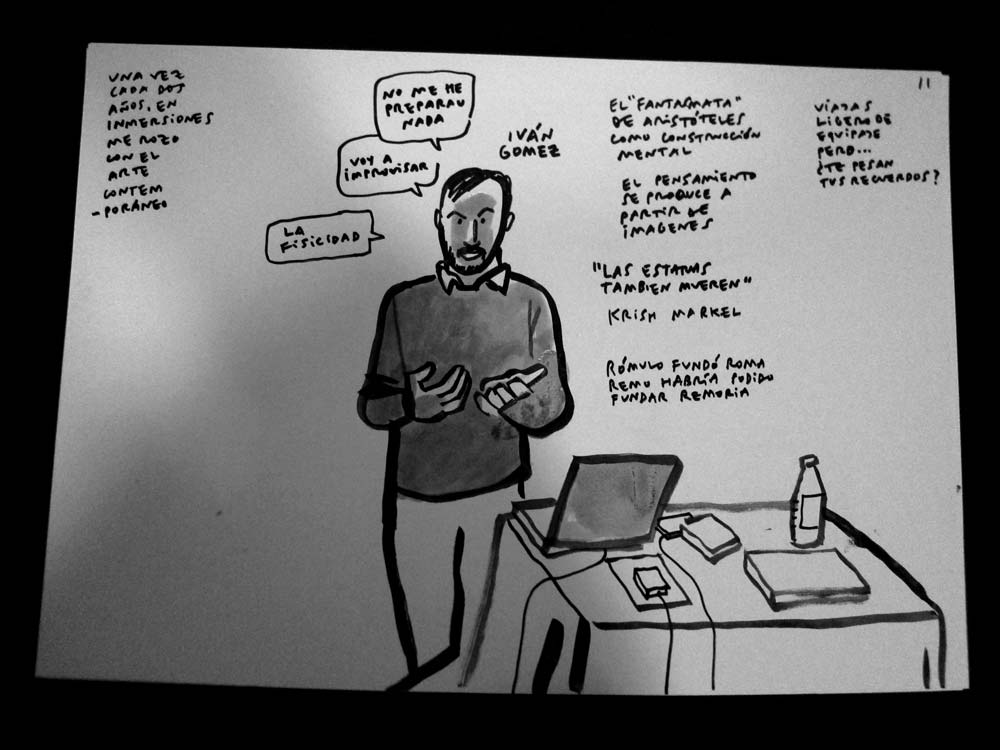 UNA VEZ
CADA DOS
AÑOS, EN
INMERSIONES
ME ROZO
CON EL
ARTE
CONTEM
-PORÁNEO
NO ME HE
PREPARAU
NADA
VOY A
IMPROVISAR
LA
FISICIDAD
IVÁN
GOMEZ
EL "FANTASMATA"
DE ARISTÓTELES
COMO CONSTRUCCIÓN
MENTAL
EL PENSAMIENTO
SE PRODUCE A
PARTIR DE
IMAGENES
"LAS ESTATUAS
TAMBIEN MUEREN"
KRISH MARKEL
RÓMULO FUNDÓ ROMA
REMO HABRÍA PODIDO
FUNDAR REMORIA
11
VIAJAS
LIGERO DE
EQUIPAJE
PERO...
¿TE PESAN
TUS RECUERDOS?